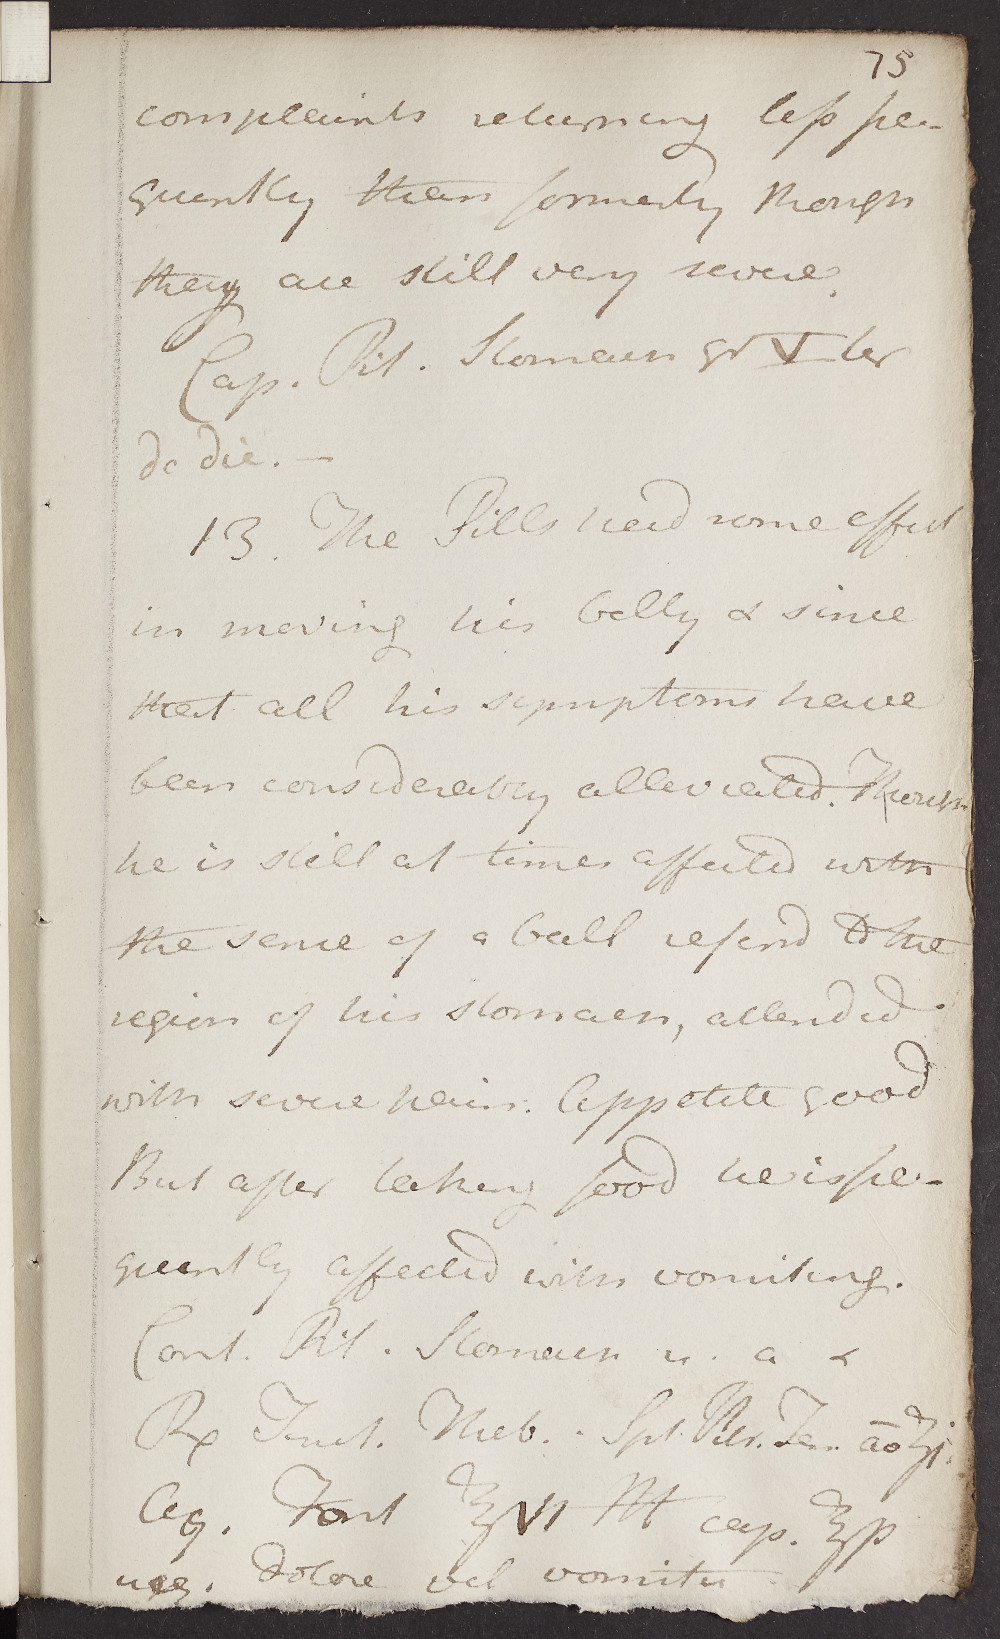 75
complaints returning less fre-
quently than formerly though
they are still very severe.
Cap. Pil. Stomach gr V ter
de die. —
13. The Pills had some effect
in moving his belly & since
that all his symptoms have
been considerably alleviated. Though
he is still at times affected with
the sense of a ball referd to the
region of his stomach, attended
with severe pain. Appetite good
But after taking food he is fre-
quently affected with vomiting.
Cont. Pil. Stomach u. a &
Rx Tinct. Theb. Spt. Nitr. āā ʒj.
Aq. Font ℥VI M cap. ℥ß
urg. dolore vel vomitu